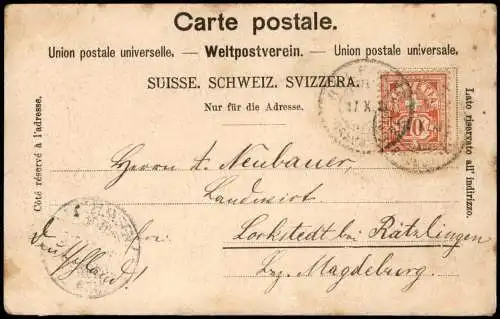 Carte postale.
Union postale universelle. — Weltpostverein. — Union postale universale.
SUISSE. SCHWEIZ. SVIZZERA.
Nur für die Adresse.
Côté réservé à l'adresse.
Lato riservato all' indirizzo.
17 X
10
Herrn A. Neubauer,
Landwirt
Lockstedt bei Rätzlingen
Bzg. Magdeburg
Deutschland!